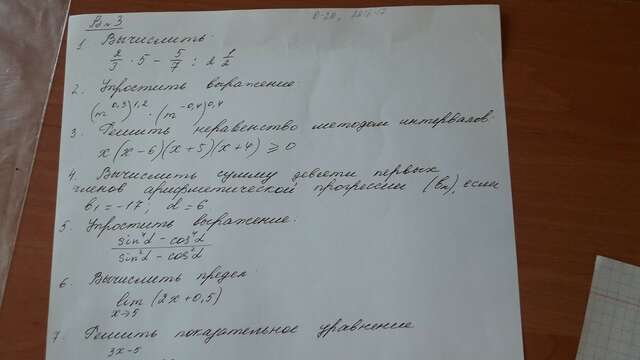 В № 3
1. Вычислить:
2/3 · 5 - 5/7 : 2 1/2
2. Упростить выражение
(m^0,3)^1,2 · (m^-0,4)^0,4
3. Решить неравенство методом интервалов:
x(x-6)(x+5)(x+4) ≥ 0
4. Вычислить сумму девяти первых
членов арифметической прогрессии (bn), если
b1 = -17; d = 6
5. Упростить выражение:
sin⁴α - cos⁴α
sin²α - cos²α
6. Вычислить предел
lim (2x + 0,5)
x→5
7. Решить показательное уравнение
3x-5